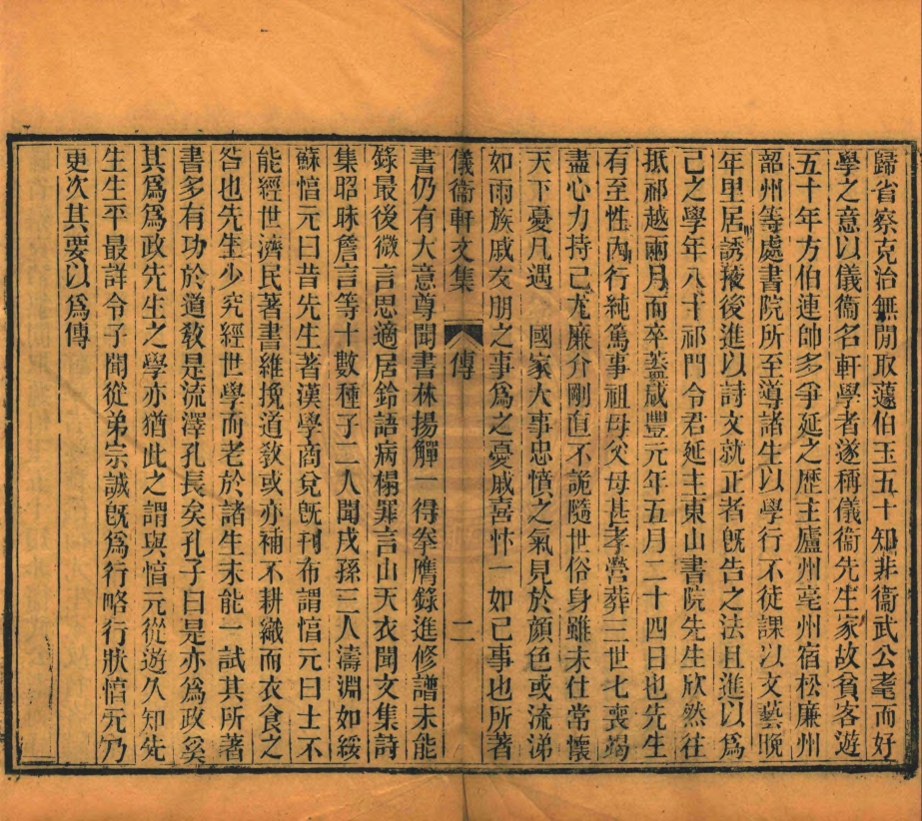 歸省察克治無閒取蘧伯玉五十知非衞武公耄而好
學之意以儀衞名軒學者遂稱儀衞先生家故貧客遊
五十年方伯連帥多爭延之歷主廬州亳州宿松廉州
韶州等處書院所至導諸生以學行不徒課以文藝晚
年里居誘掖後進以詩文就正者旣告之法且進以爲
己之學年八十祁門令君延主東山書院先生欣然往
抵祁越兩月而卒蓋咸豐元年五月二十四日也先生
有至性內行純篤事祖母父母甚孝營葬三世七喪竭
盡心力持己尤廉介剛直不詭隨世俗身雖未仕常懷
天下憂凡遇　國家大事忠憤之氣見於顏色或流涕
如雨族戚友朋之事爲之憂戚喜忭一如己事也所著
儀衞軒文集　傳　二
書仍有大意尊聞書林揚觶一得拳膺錄進修譜未能
錄最後微言思適居鈴語病榻罪言山天衣聞文集詩
集昭昧詹言等十數種子二人聞戌孫三人濤淵如綏
蘇惜元曰昔先生著漢學商兌旣刊布謂惜元曰士不
能經世濟民著書維挽道敎或亦補不耕織而衣食之
咎也先生少究經世學而老於諸生未能一試其所著
書多有功於道敎是流澤孔長矣孔子曰是亦爲政奚
其爲爲政先生之學亦猶此之謂與惜元從遊久知先
生生平最詳令子聞從弟宗誠旣爲行略行狀惜元乃
更次其要以爲傳